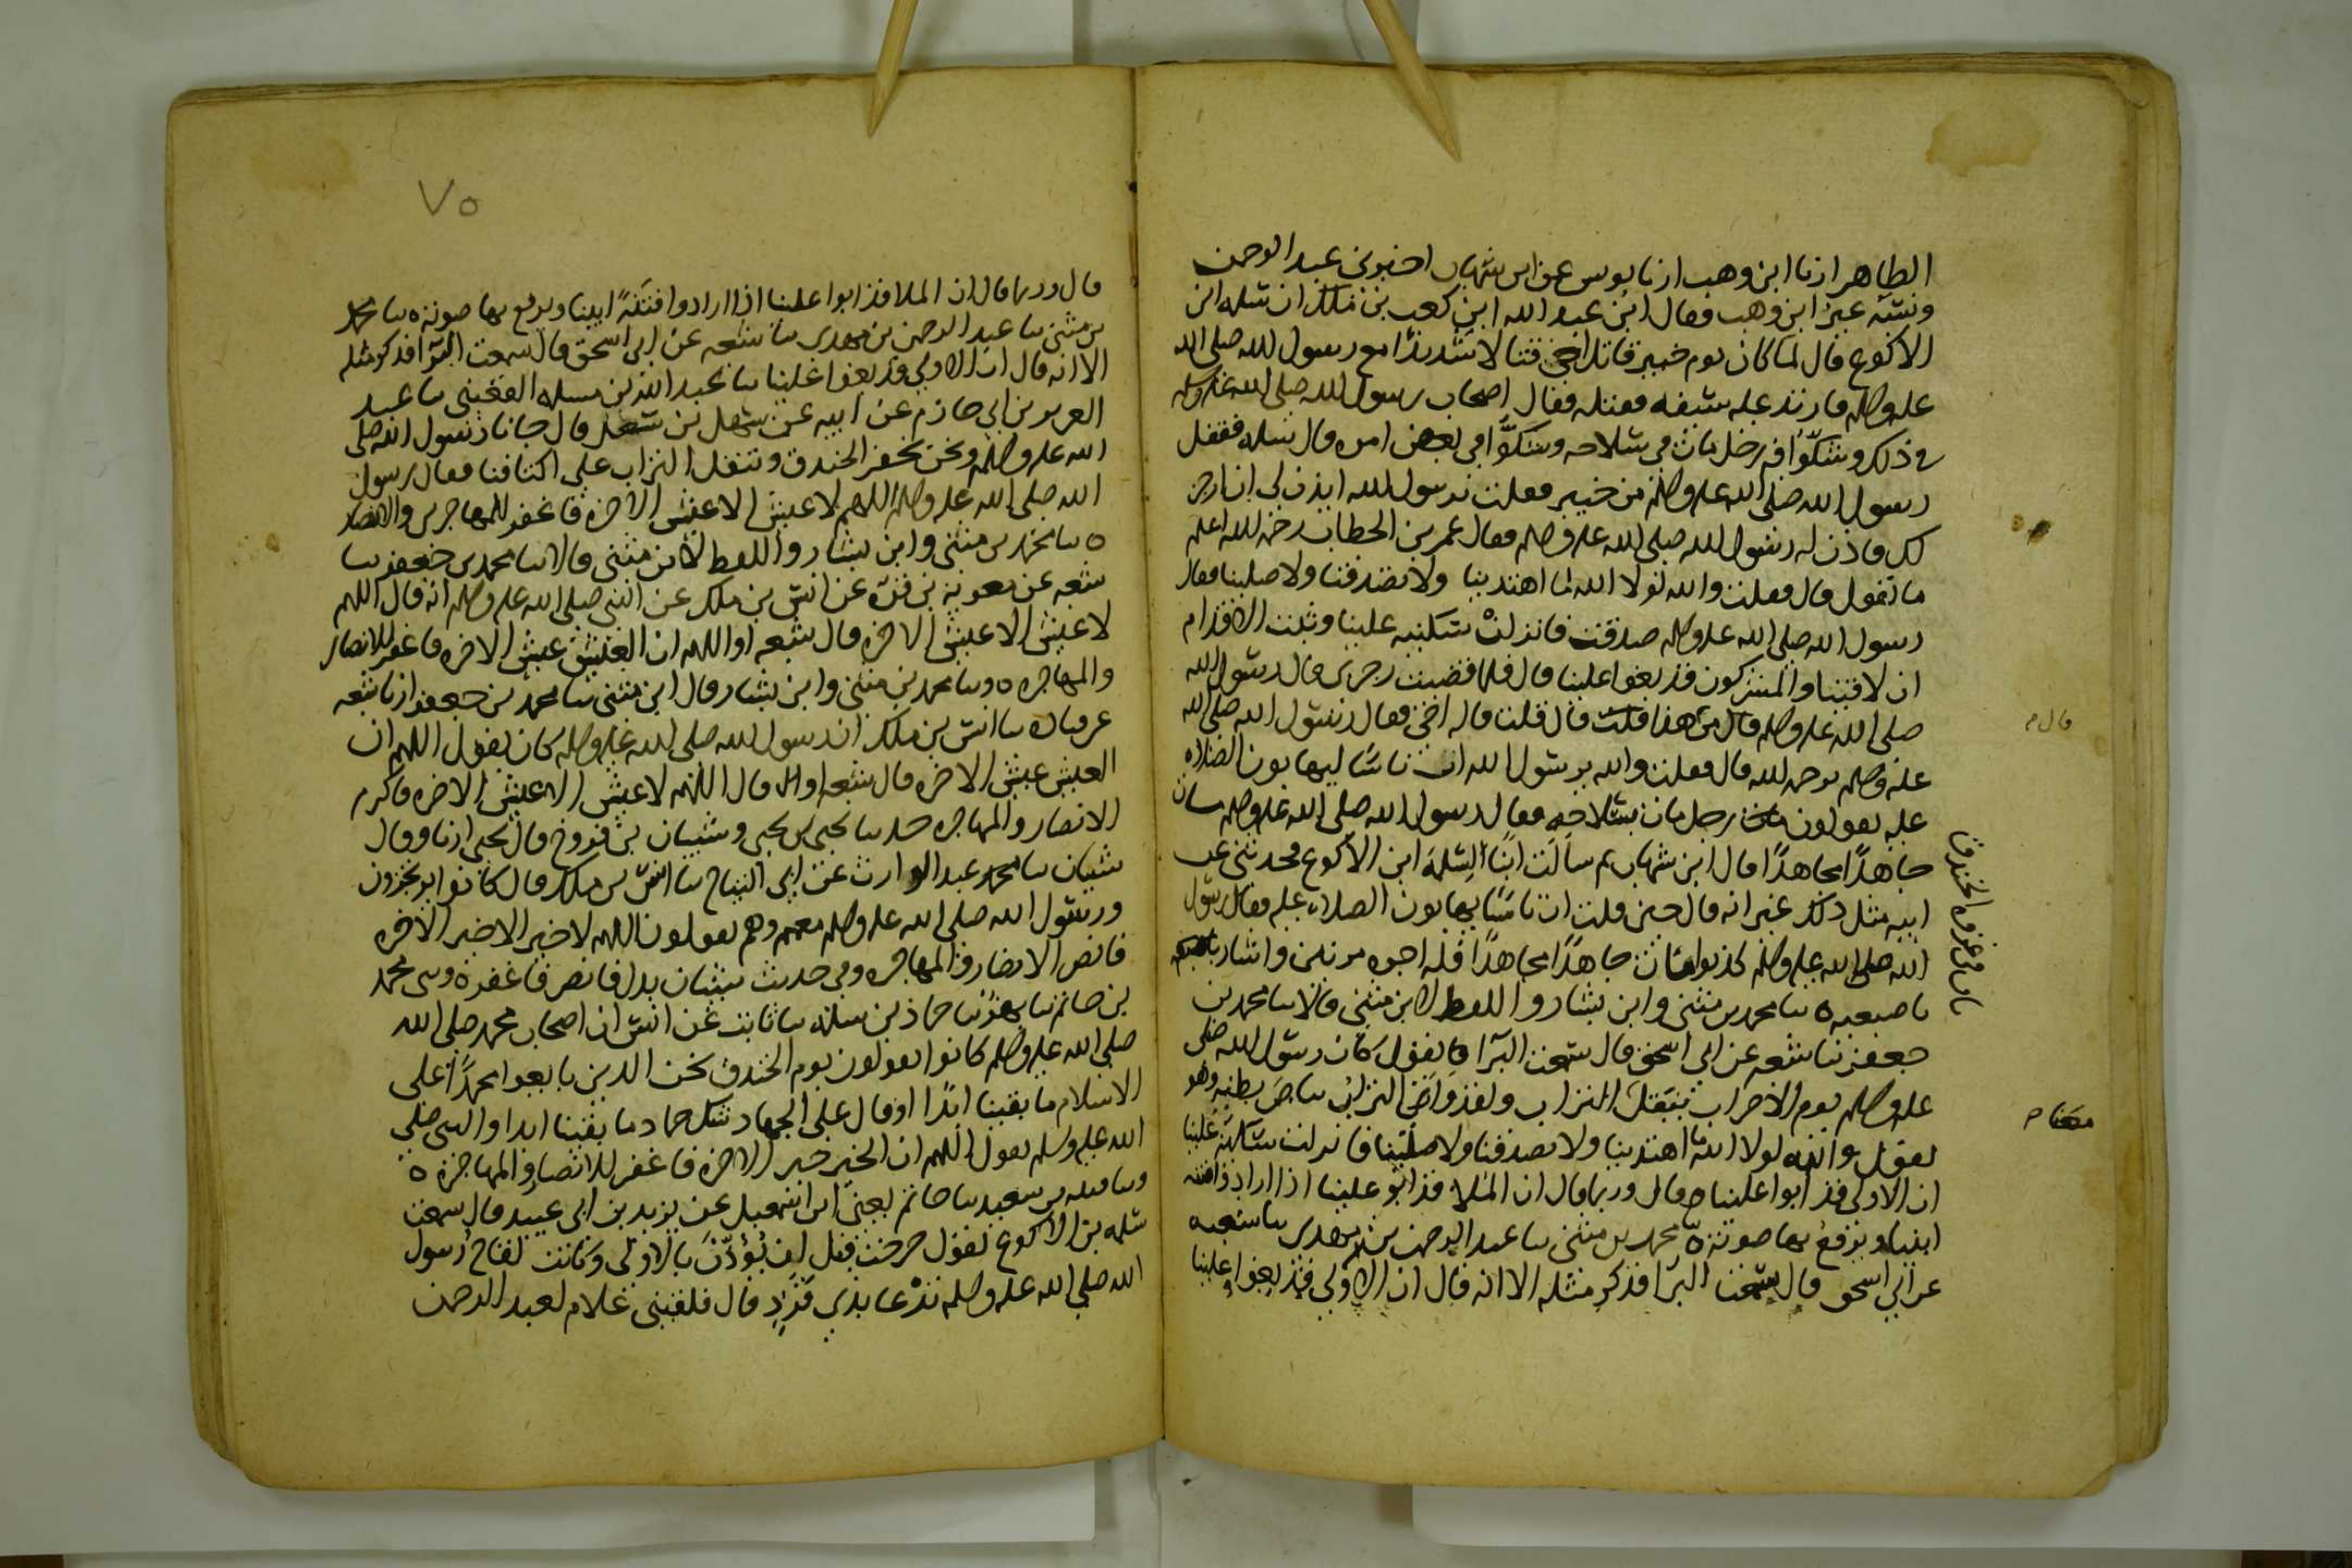 الطاهر ارنا ابن وهب ارنا يونس عن ابن شهاب اخبرني عبد الرحمن
ونسبه غير ابن وهب فقال ابن عبد الله ابن كعب بن ملك ان سلمه ابن
الاكوع قال لما كان يوم خيبر قاتل اخي قتالا شديدا مع رسول الله صلى الله
عليه وسلم فارتد عليه سيفه فقتله فقال اصحاب رسول الله صلى الله عليه وسلم
في ذلك وشكوا فيه رجل مات في سلاحه وشكوا في بعض امره قال سلمه فقفل
رسول الله صلى الله عليه وسلم من خيبر فقلت يرسول الله ايذن لي ان ارجز
لك فاذن له رسول الله صلى الله عليه وسلم فقال عمر بن الخطاب رحمه الله اعلم
ما تقول قال فقلت والله لولا الله ما اهتدينا ولا تصدقنا ولا صلينا فقال
رسول الله صلى الله عليه وسلم صدقت فانزلن سكينه علينا وثبت الاقدام
ان لاقينا والمشركون قد بغوا علينا قال فلما قضيت رجزي قال رسول الله
صلى الله عليه وسلم قال من هذا قلت قال قلت قاله اخي فقال رسول الله صلى الله
عليه وسلم يرحمه الله قال فقلت والله يرسول الله ان ناسا ليهابون الصلاه
عليه يقولون رجل مات بسلاحه فقال رسول الله صلى الله عليه وسلم مات
جاهدا مجاهدا قال ابن شهاب ثم سالت ابنا لسلمه ابن الاكوع فحدثني عن
ابيه مثل ذلك غير انه قال حين قلت ان ناسا يهابون الصلاه عليه فقال رسول
الله صلى الله عليه وسلم كذبوا مات جاهدا مجاهدا فله اجره مرتين واشار
باصبعيه ٥ سا محمد بن مثنى وابن بشار واللفظ لابن مثنى قالا سا محمد بن
جعفر سا شعبه عن ابي اسحق قال سمعت البرا قا يقول كان رسول الله صلى
عليه وسلم يوم الاحزاب ينقل التراب ولقد وارى التراب بياض بطنه وهو
يقول والله لولا انت ما اهتدينا ولا تصدقنا ولا صلينا فانزلن سكينة علينا
ان الاولى قد ابوا علينا قال وربما قال ان الملا قد ابو علينا اذا ارادوا فتنه
ابينا ويرفع بها صوته ٥ محمد بن مثنى سا عبد الرحمن بن مهدي سا شعبه
عن ابي اسحق قال سمعت البرا فذكر مثله الا انه قال ان الاولى قد بغوا علينا
باب في غزوه الخندق
قال م
٧٥
قال وربما قال ان الملا قد ابوا علينا اذا ارادوا فتنة ابينا ويرفع بها صوته ٥ سا محمد
بن مثنى سا عبد الرحمن بن مهدى سا شعبه عن ابي اسحق قال سمعت البرا فذكر مثله
الا انه قال ان الاولى قد بغوا علينا سا عبد الله بن مسلمه القعنبي سا عبد
العزيز بن ابي حازم عن ابيه عن سهل بن سعد قال جانا رسول الله صلى
الله عليه وسلم ونحن نحفر الخندق وننقل التراب على اكتافنا فقال رسول
الله صلى الله عليه وسلم اللهم لا عيش الا عيش الاخره فاغفر للمهاجرين والانصار
٥ سا محمد بن مثنى وابن بشار واللفظ لابن مثنى قالا سا محمد بن جعفر سا
شعبه عن معوية بن قرة عن انس بن ملك عن النبي صلى الله عليه وسلم انه قال اللهم
لا عيش الا عيش الاخره قال شعبه او اللهم ان العيش عيش الاخره فاغفر للانصار
والمهاجره ٥ وسا محمد بن مثنى وابن بشار قال ابن مثنى سا محمد بن جعفر ارنا شعبه
عن قتاده سا انس بن ملك ان رسول الله صلى الله عليه وسلم كان يقول اللهم ان
العيش عيش الاخره قال شعبه او قال اللهم لا عيش الا عيش الاخره فاكرم
الانصار والمهاجره حد سا يحيى بن يحيى وشيبان بن فروخ قال يحيى ارنا وقال
شيبان سا عبد الوارث عن ابي التياح سا انس بن ملك قال كانوا يرتجزون
ورسول الله صلى الله عليه وسلم معهم وهم يقولون اللهم لا خير الا خير الاخره
فانصر الانصار والمهاجره وفي حديث شيبان بدل فانصر فاغفر ٥ وسى محمد
بن حاتم سا بهز سا حماد بن سلمه سا ثابت عن انس ان اصحاب محمد صلى الله
صلى الله عليه وسلم كانوا يقولون يوم الخندق نحن الذين بايعوا محمدا على
الاسلام ما بقينا ابدا او قال على الجهاد شك حماد ما بقينا ابدا والنبي صلى
الله عليه وسلم يقول اللهم ان الخير خير الاخره فاغفر للانصار والمهاجره ٥
وسا قتيبه بن سعيد سا حاتم يعني ابن اسمعيل عن يزيد بن ابي عبيد قال سمعت
سلمه بن الاكوع يقول خرجت قبل ان يؤذن بالاولى وكانت لقاح رسول
الله صلى الله عليه وسلم ترعا بذي قرد قال فلقيني غلام لعبد الرحمن